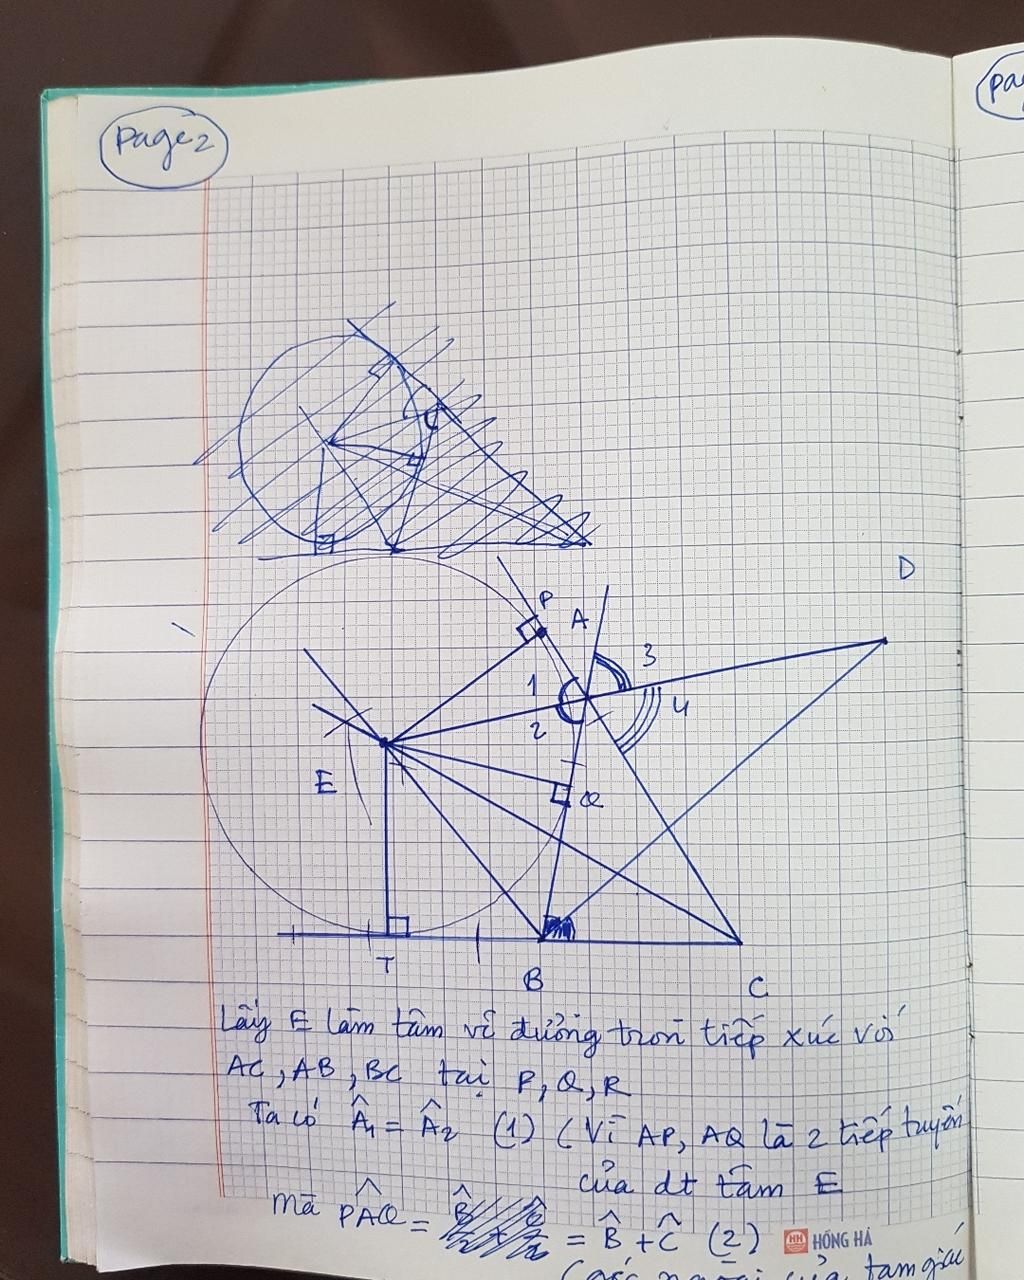 Page 2
pa
D
P
A
3
1
4
2
E
Q
T
B
C
Lấy E làm tâm vẽ đường tròn tiếp xúc với
AC, AB, BC tại P, Q, R
Ta có Â₁ = Â₂ (1) (Vì AP, AQ là 2 tiếp tuyến
của đt tâm E
mà PÂQ = = B̂ + Ĉ (2) HỒNG HÀ
(góc ngoài của tam giác